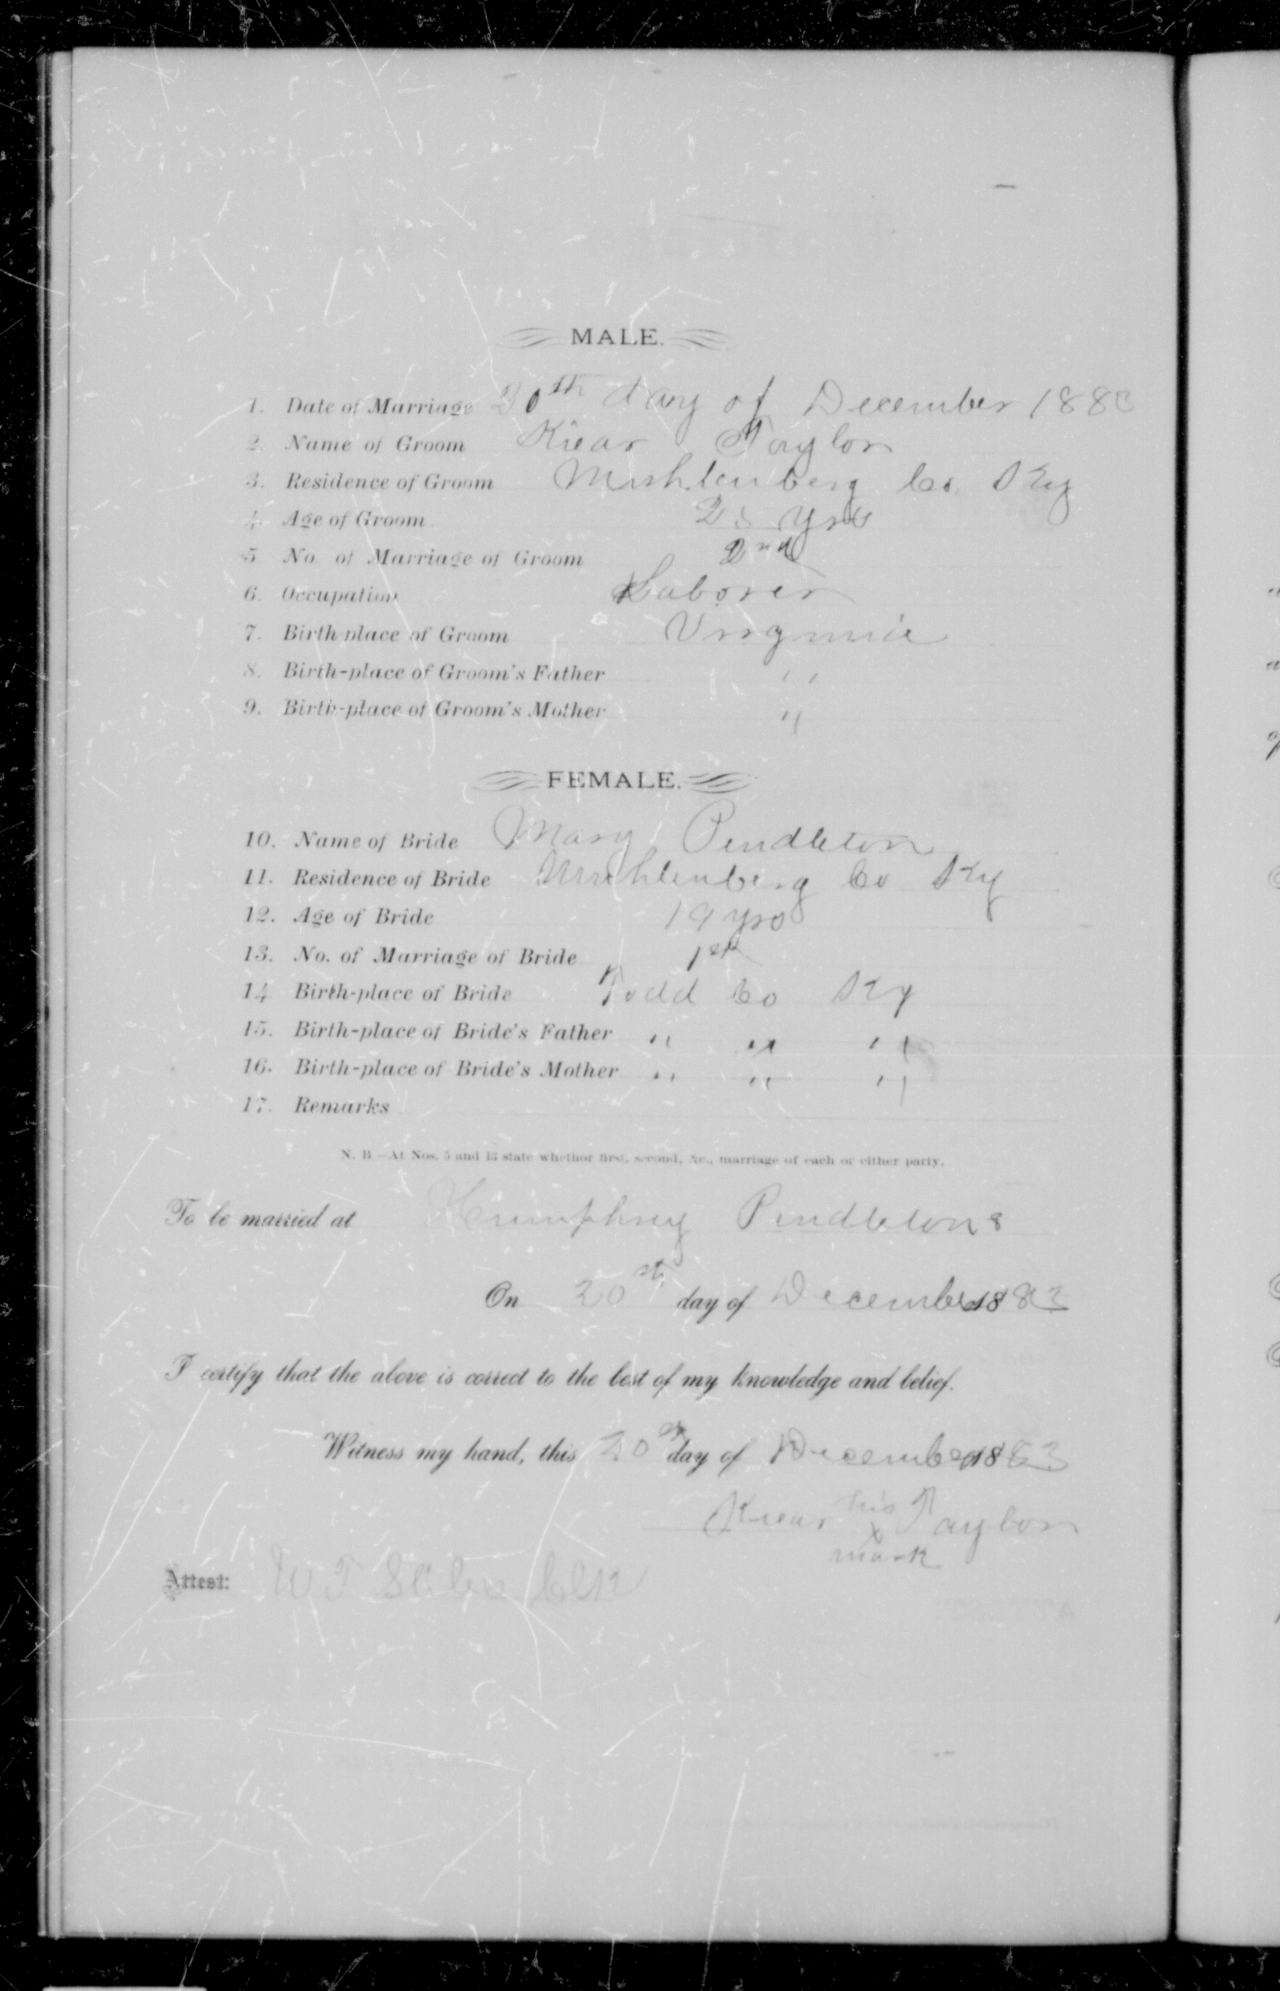 MALE.
1. Date of Marriage 20th day of December 1883
2. Name of Groom Kiear Taylor
3. Residence of Groom Muhlenberg Co. Ky
4. Age of Groom yrs
5 No. of Marriage of Groom 2nd
6. Occupation Laborer
7. Birth-place of Groom Virginia
8. Birth-place of Groom's Father " "
9. Birth-place of Groom's Mother "
FEMALE.
10. Name of Bride Mary Pendleton
11. Residence of Bride Muhlenberg Co Ky
12. Age of Bride 19 yrs
13. No. of Marriage of Bride 1st
14 Birth-place of Bride Todd Co Ky
15. Birth-place of Bride's Father " " "
16. Birth-place of Bride's Mother " " "
17. Remarks
N. B.—At Nos. 5 and 13 state whether first, second, &c., marriage of each or either party.
To be married at Humphrey Pendletons
On 20th day of December 1883
I certify that the above is correct to the best of my knowledge and belief.
Witness my hand, this 20 day of December 1883
his
Kiear x Taylor
mark
Attest: W T Clk